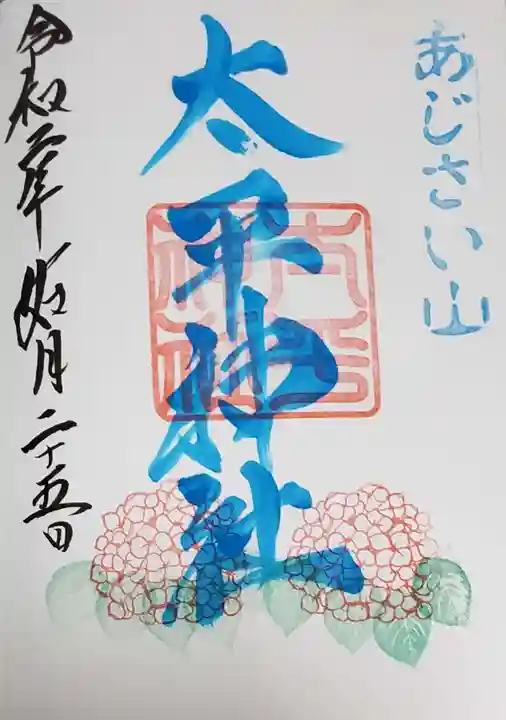 あじさい山
太平神社
令和二年 月二十五日